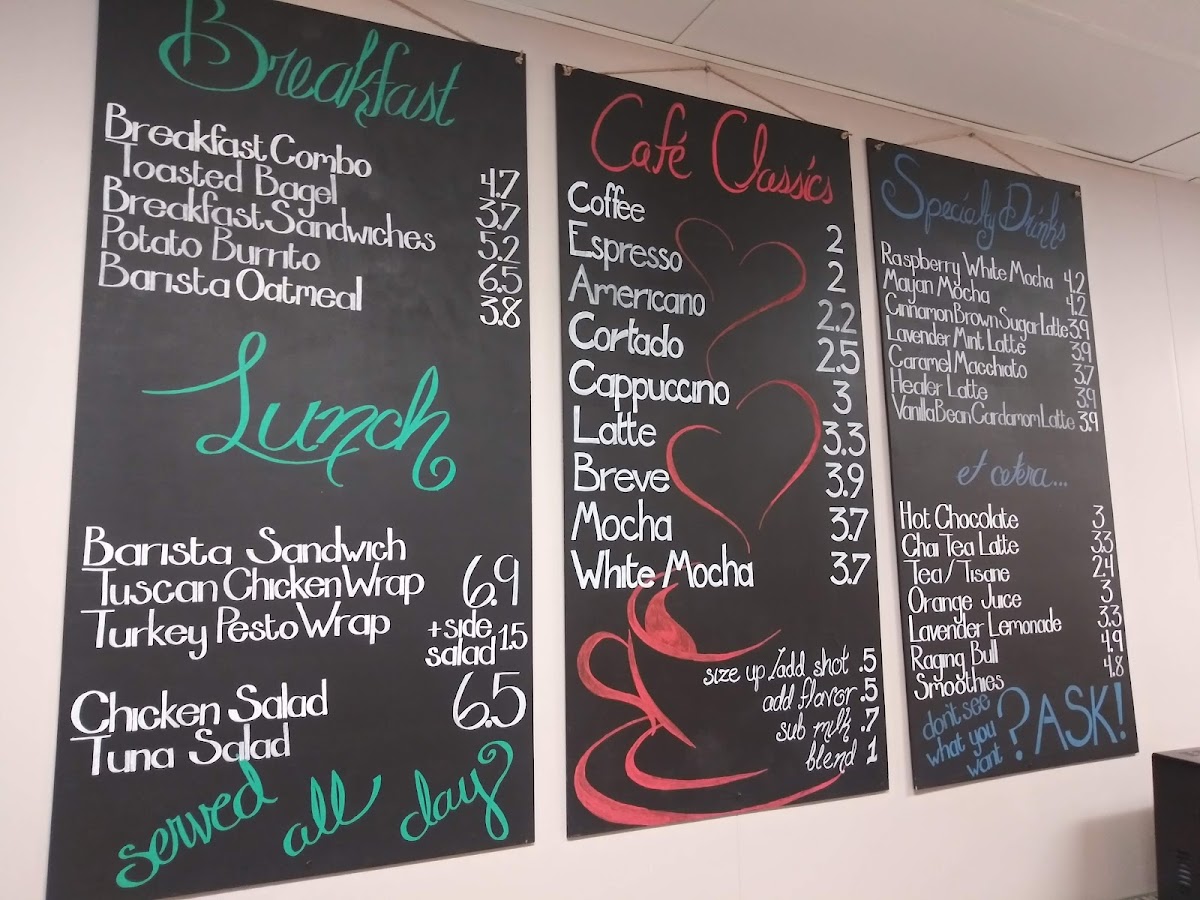 Breakfast
Breakfast Combo 4.7
Toasted Bagel 3.7
Breakfast Sandwiches 5.2
Potato Burrito 6.5
Barista Oatmeal 3.8
Lunch
Barista Sandwich
Tuscan Chicken Wrap 6.9
Turkey Pesto Wrap +side
salad 1.5
Chicken Salad 6.5
Tuna Salad
served all day
Café Classics
Coffee 2
Espresso 2
Americano 2.2
Cortado 2.5
Cappuccino 3
Latte 3.3
Breve 3.9
Mocha 3.7
White Mocha 3.7
size up/add shot .5
add flavor .5
sub milk .7
blend 1
Specialty Drinks
Raspberry White Mocha 4.2
Mayan Mocha 4.2
Cinnamon Brown Sugar Latte 3.9
Lavender Mint Latte 3.9
Caramel Macchiato 3.7
Healer Latte 3.9
Vanilla Bean Cardamom Latte 3.9
et cetera...
Hot Chocolate 3
Chai Tea Latte 3.3
Tea/Tisane 2.4
Orange Juice 3
Lavender Lemonade 3.3
Raging Bull 4.9
Smoothies 4.8
don't see
what you
want ? ASK!